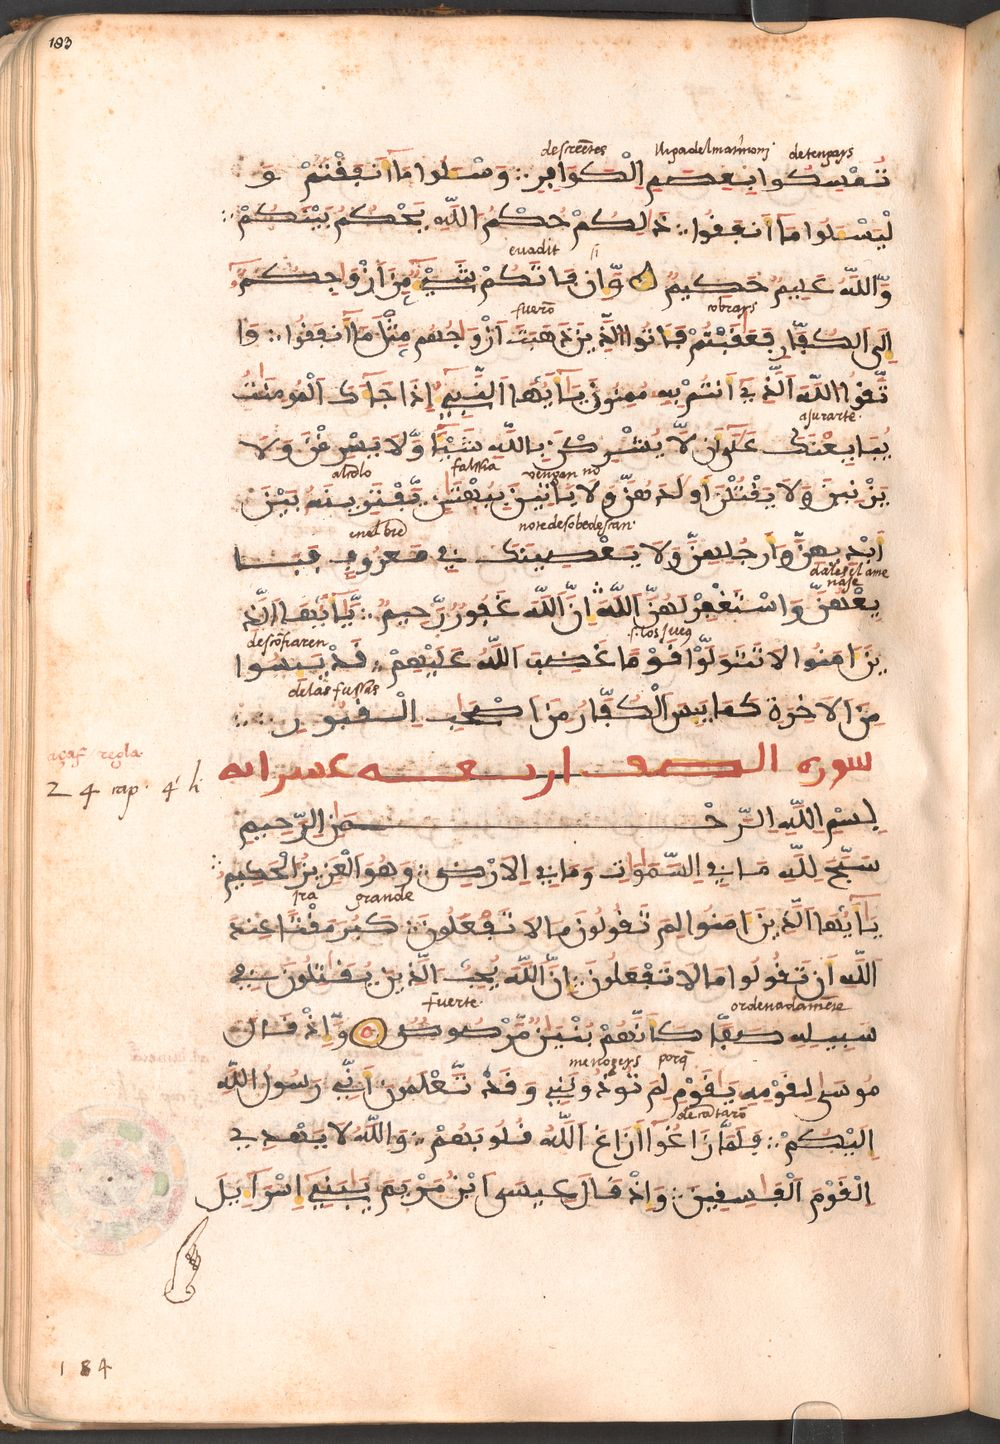 193
descreētes detengays
تُمْسِكُوا بِعِصَمِ اِ۬لْكَوَافِرِ وَسْـَٔلُوا مَا أَنفَقْتُمْ وَ
لْيَسْـَٔلُوا مَا أَنفَقُوا ذَٰلِكُمْ حُكْمُ اُ۬للَّهِ يَحْكُمُ بَيْنَكُمْ
evadit si
وَاللَّهُ عَلِيمٌ حَكِيمٌ وَإِن فَاتَكُمْ شَيْءٌ مِّنْ أَزْوَاجِكُمْ
fuerō cobrays
إِلَى الْكُفَّارِ فَعَقَبْتُمْ فَـَٔاتُوا الَّذِينَ ذَهَبَتْ أَزْوَاجُهُم مِّثْلَ مَا أَنفَقُوا وَا
تَّقُوا اللَّهَ الَّذِي أَنتُم بِهِ مُومِنُونَ يَا أَيُّهَا النَّبِيءُ إِذَا جَاءَكَ الْمُومِنَٰتُ
ajurarte
يُبَايِعْنَكَ عَلَىٰ أَن لَّا يُشْرِكْنَ بِاللَّهِ شَيْـًٔا وَلَا يَسْرِقْنَ وَلَا
alcolo falssia vengan no
يَزْنِينَ وَلَا يَقْتُلْنَ أَوْلَٰدَهُنَّ وَلَا يَاتِينَ بِبُهْتَٰنٍ يَفْتَرِينَهُ بَيْنَ
enel biē notedesobedescan
أَيْدِيهِنَّ وَأَرْجُلِهِنَّ وَلَا يَعْصِينَكَ فِي مَعْرُوفٍ فَبَا
dales el ame
nase
يِعْهُنَّ وَاسْتَغْفِرْ لَهُنَّ اللَّهَ إِنَّ اللَّهَ غَفُورٌ رَّحِيمٌ يَا أَيُّهَا الَّذِ
descōfiaren .s. los jueꝯ
ينَ ءَامَنُوا لَا تَتَوَلَّوْا قَوْمًا غَضِبَ اللَّهُ عَلَيْهِمْ قَدْ يَئِسُوا
delas fussas
مِنَ الْأَخِرَةِ كَمَا يَئِسَ الْكُفَّارُ مِنْ أَصْحَٰبِ الْقُبُورِ
açaf regla
سورة الصف اربعه عشر ايه
24 cap. 4 li
بِسْمِ اللَّهِ الرَّحْمَٰنِ الرَّحِيمِ
سَبَّحَ لِلَّهِ مَا فِي السَّمَٰوَٰتِ وَمَا فِي الْأَرْضِ وَهُوَ الْعَزِيزُ الْحَكِيمُ
ira grande
يَا أَيُّهَا الَّذِينَ ءَامَنُوا لِمَ تَقُولُونَ مَا لَا تَفْعَلُونَ كَبُرَ مَقْتًا عِندَ
اللَّهِ أَن تَقُولُوا مَا لَا تَفْعَلُونَ إِنَّ اللَّهَ يُحِبُّ الَّذِينَ يُقَٰتِلُونَ فِي
fuerte ordenadamēte
سَبِيلِهِ صَفًّا كَأَنَّهُم بُنْيَٰنٌ مَّرْصُوصٌ وَإِذْ قَالَ
menogeys porq̄
مُوسَىٰ لِقَوْمِهِ يَٰقَوْمِ لِمَ تُوذُونَنِي وَقَد تَّعْلَمُونَ أَنِّي رَسُولُ اللَّهِ
decātarō
إِلَيْكُمْ فَلَمَّا زَاغُوا أَزَاغَ اللَّهُ قُلُوبَهُمْ وَاللَّهُ لَا يَهْدِي
الْقَوْمَ الْفَٰسِقِينَ وَإِذْ قَالَ عِيسَى ابْنُ مَرْيَمَ يَٰبَنِي إِسْرَاءِيلَ
184